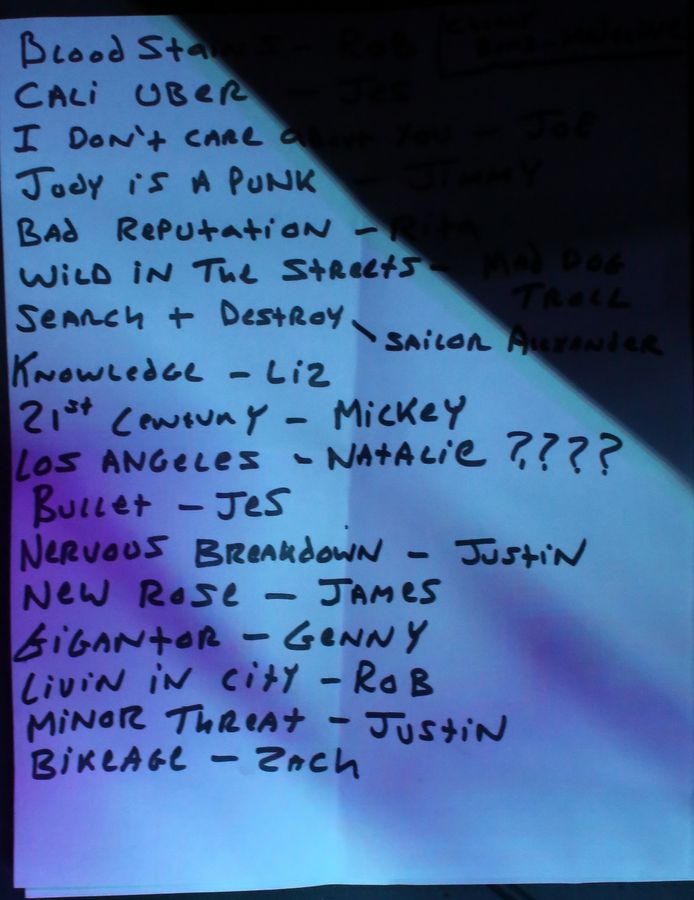 Blood Stains - Rob
CALi UBER - Jes
I DON't CARE about You - JOE
Jody iS A PUNK - JiMMY
BAd REPUtAtiON - Rita
WiLD iN THE StREEtS - MAd DOG
TROLL
SEARCH + DEStROY \ SAiLOR Alexander
KNOWLEdGE - Liz
21st CENtURY - MiCKEY
LOS ANGELES - NAtALiE ????
BULLEt - JES
NERVOUS BREAKdOWN - JUStiN
NEW ROSE - JAMES
GiGANtOR - GENNY
LiViN iN CitY - ROB
MiNOR THREAt - JUStiN
BiKEAGE - ZACH